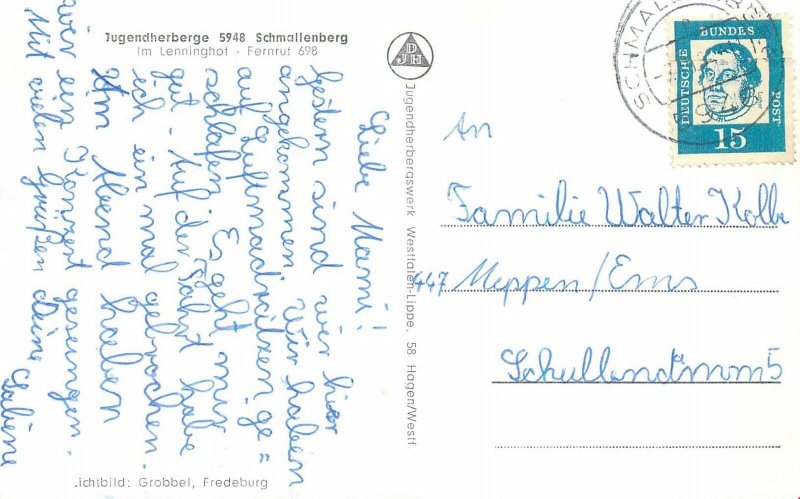 Jugendherberge 5948 Schmallenberg
Im Lenninghof - Fernruf 698
Liebe Mami!
Gestern sind wir hier
angekommen. Wir haben
auf Luftmadratzen ge=
schlafen. Es geht mir
gut. Auf der Fahrt habe
ich ein mal gebrochen.
Am Abend haben
wir ein Konzert gesungen.
Mit vielen Grüßen deine
Sabine
ichtbild: Grobbel, Fredeburg
DJH
Jugendherbergswerk Westfalen-Lippe, 58 Hagen/Westf
SCHMALLENBE
DEUTSCHE BUNDES POST
15
An
Familie Walter Kolbe
447 Meppen/Ems
Schullandamm 5